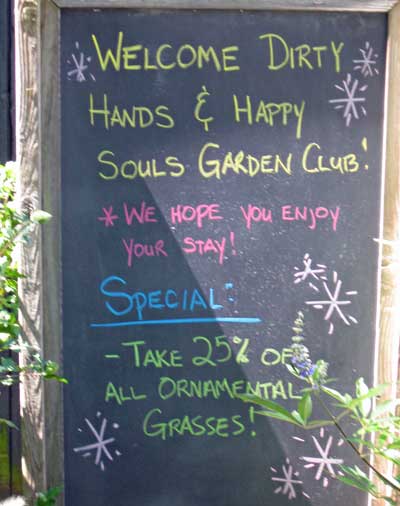 Welcome Dirty
Hands & Happy
Souls Garden Club!
* We hope you enjoy
your stay!
Special:
- Take 25% of
all Ornamental
Grasses!